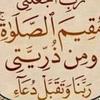 رب اجعلني
مقيم الصلوة
ومن ذريتي
ربنا وتقبل دعاء